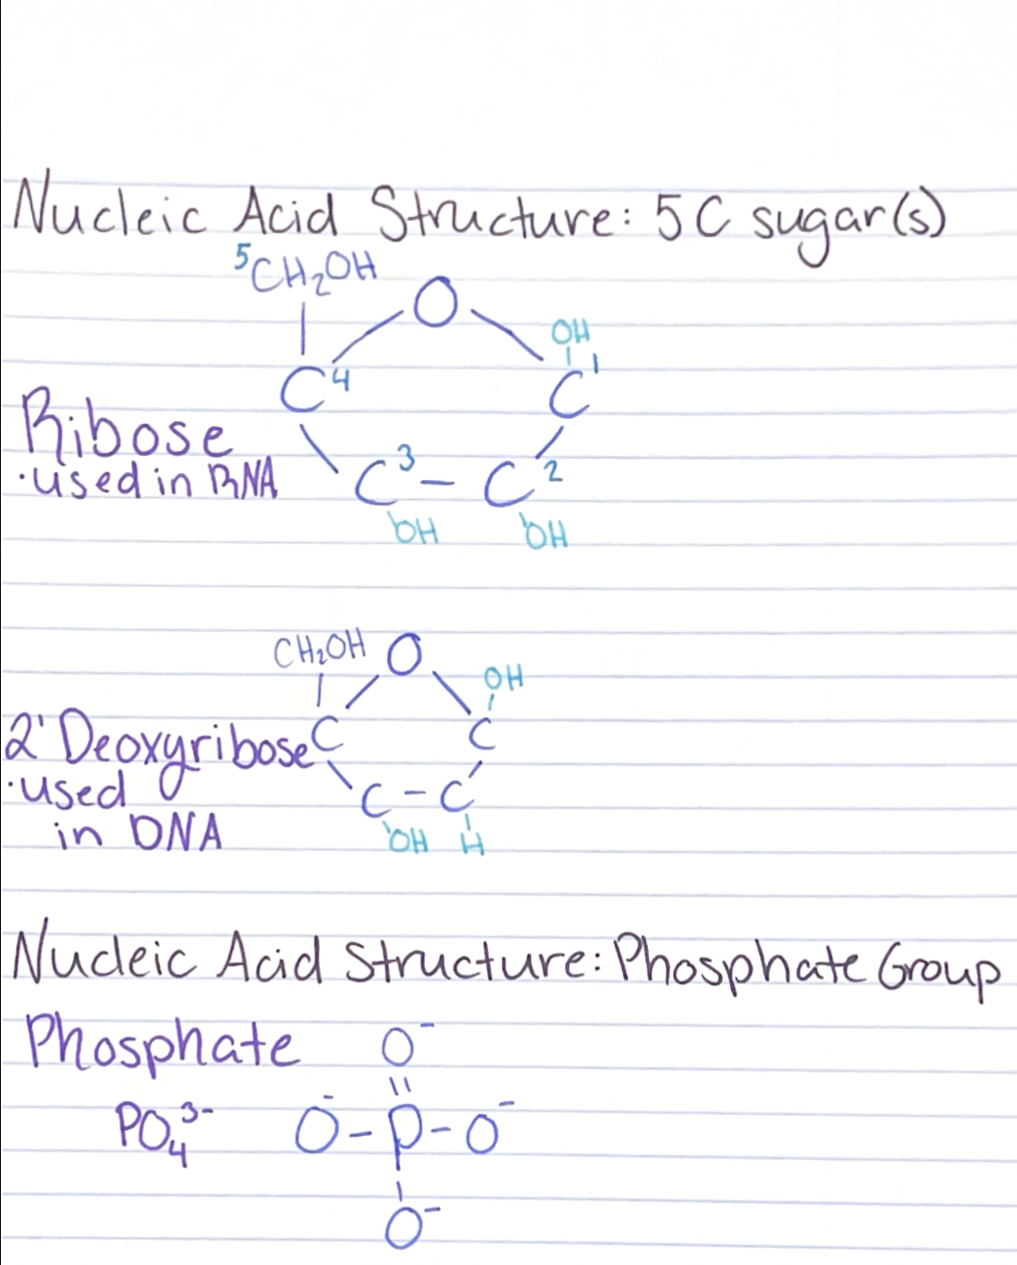 Nucleic Acid Structure: 5C sugar(s)
⁵CH₂OH
O
OH
C⁴
C¹
Ribose
•used in RNA
C³ – C²
OH OH
CH₂OH O
OH
2' Deoxyribose C C
•used
C – C
in DNA
OH H
Nucleic Acid Structure: Phosphate Group
Phosphate O⁻
PO₄³⁻ O⁻ – P – O⁻
O⁻